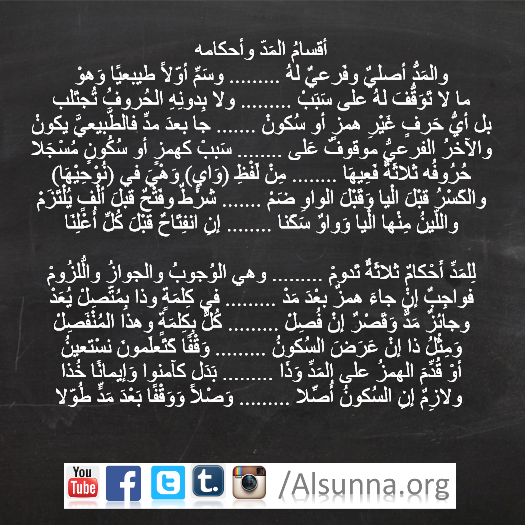 أقسامُ المَدّ وأحكامه
والمَدُّ أصليٌّ وفَرعيٌّ لهُ ......... وسَمِّ أوّلاً طبيعيًا وَهوْ
ما لا تَوَقُّفَ لهُ على سَبَبْ ......... ولا بِدونِهِ الحُروفُ تُجتَلب
بل أيُّ حَرفٍ غَيْرِ همزٍ أو سُكونْ ....... جا بعدَ مدٍّ فالطَّبيعيَّ يكونْ
والآخَرُ الفَرعيُّ موقوفٌ عَلى ........ سَببٍ كهمزٍ أو سُكُونٍ مُسْجَلا
حُرُوفُه ثلاثَةٌ فَعِيهَا ........ مِنْ لَفْظِ (وَايٍ) وَهْيَ في (نُوْحِيْهَا)
والكَسْرُ قبْلَ الْيا وَقَبْلَ الواوِ ضَمْ ....... شَرْطٌ وفَتْحٌ قبلَ ألفٍ يُلْتَزَمْ
واللِّينُ مِنْها الْيا وَواوٌ سَكَنا ........ إنِ انفِتَاحٌ قَبْلَ كُلٍّ أُعْلِنَا
لِلمَدِّ أَحْكامٌ ثلاثَةٌ تَدومْ ......... وهي الوُجوبُ والجوازُ واللُّزومْ
فواجِبٌ إنْ جاءَ همزٌ بعْدَ مَدْ ......... في كِلمَةٍ وذا بمُتَّصِلْ يُعَدْ
وجائِزٌ مَدٌّ وَقَصْرٌ إنْ فُصِلْ ......... كُلٌّ بكِلمَةٍ وهذا المُنْفَصِلْ
وَمِثْلُ ذا إنْ عَرَضَ السُكونُ ......... وَقْفًا كَتَعلَمونَ نستَعينُ
أوْ قُدِّمَ الهمزُ على المَدِّ وَذَا ......... بَدَل كآمنوا وَإيمانًا خُذا
ولازِمٌ إنِ السُكونُ أُصِّلا ......... وَصْلاً وَوَقْفًا بَعْدَ مَدٍّ طُوِّلا
You Tube f t t. /Alsunna.org